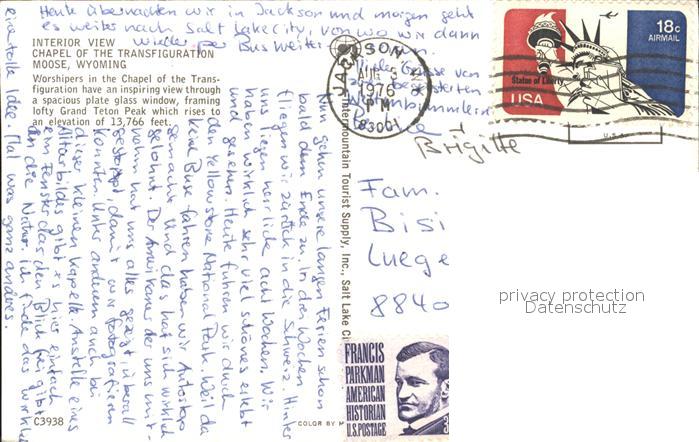 INTERIOR VIEW
CHAPEL OF THE TRANSFIGURATION
MOOSE, WYOMING
Worshipers in the Chapel of the Trans-
figuration have an inspiring view through
a spacious plate glass window, framing
lofty Grand Teton Peak which rises to
an elevation of 13,766 feet.
Nun gehen unsere langen Ferien schon
bald dem Ende zu. In drei Wochen
fliegen wir zurück in die Schweiz. Hinter
uns liegen herrliche acht Wochen. Wir
haben wirklich sehr viel schönes erlebt
und gesehen. Heute fuhren wir durch
den Yellowstone National Park. Weil da
keine Busse fahren haben wir Autostop
gemacht. Und das hat sich wirklich
gelohnt. Der Amerikaner der uns mit-
nahm hat uns alles gezeigt, überall
gestoppt, damit wir fotografieren
konnten. Unter anderem auch bei
dieser kleinen Kapelle. Anstelle eines
Altarbildes gibt es hier einfach
ein Fenster das den Blick frei gibt
in die Natur. Ich finde das wirklich
eine tolle Idee. Mal was ganz anderes.
Heute übernachten wir in Jackson und morgen geht
es weiter nach Salt Lake City, von wo wir dann
wieder per Bus weiter
Liebe Grüsse von
Brigitte
Fam.
Bisi
Luege
8840
JACKSON
AUG 3
PM
1976
83001
18c
AIRMAIL
Statue of Liberty
USA
U.S.A.
Intermountain Tourist Supply, Inc., Salt Lake Ci
FRANCIS
PARKMAN
AMERICAN
HISTORIAN
U.S.POSTAGE
3
C3938
COLOR BY M
privacy protection
Datenschutz